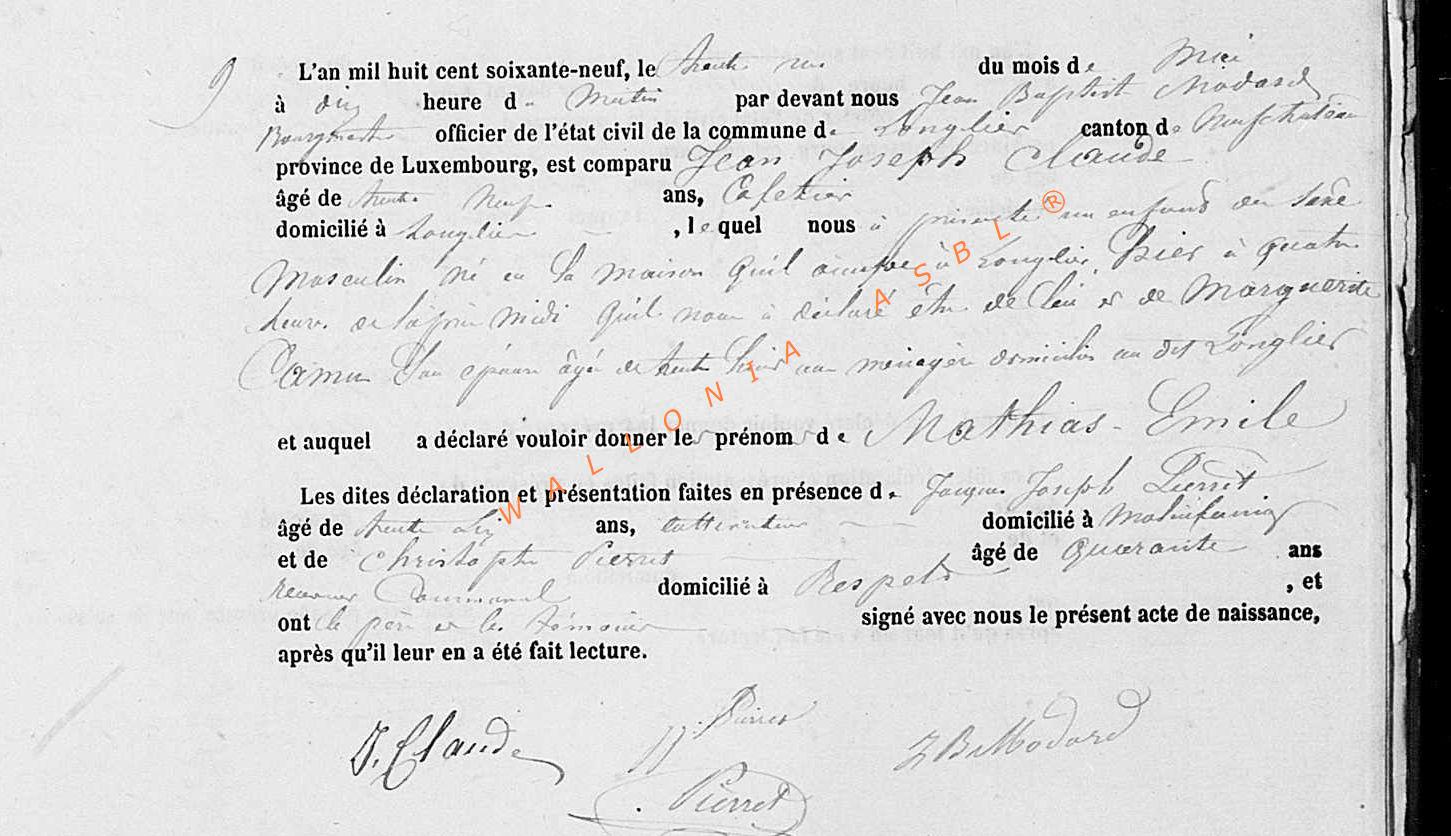 9
L'an mil huit cent soixante-neuf, le trente un du mois de Mai
à dix heure du Matin par devant nous Jean Baptist Modard
Bourgmestre officier de l'état civil de la commune de Longlier canton de Neufchateau
province de Luxembourg, est comparu Jean Joseph Claude
âgé de trente Neuf ans, Cafetier
domicilié à Longlier, lequel nous à présenté un enfand du sexe
Masculin né en sa maison quil à Longlier, hier à quatre
heure de laprès midi quil nous à déclaré être de lui et de Marguerite
Camu son épouse âgé de trente huit ans ménagère domicilié au dit Longlier
et auquel a déclaré vouloir donner les prénoms de Mathias-Emile
Les dites déclaration et présentation faites en présence de Jacques Joseph Pierret
âgé de trente six ans, cultivateur domicilié à Molinfaing
et de Christophe Pierret âgé de quarante ans
Receveur Communal domicilié à Respelt, et
ont le père et les témoins signé avec nous le présent acte de naissance,
après qu'il leur en a été fait lecture.
J. Claude
JJ. Pierret
J B Modard
Pierret
WALLONIA ASBL ®